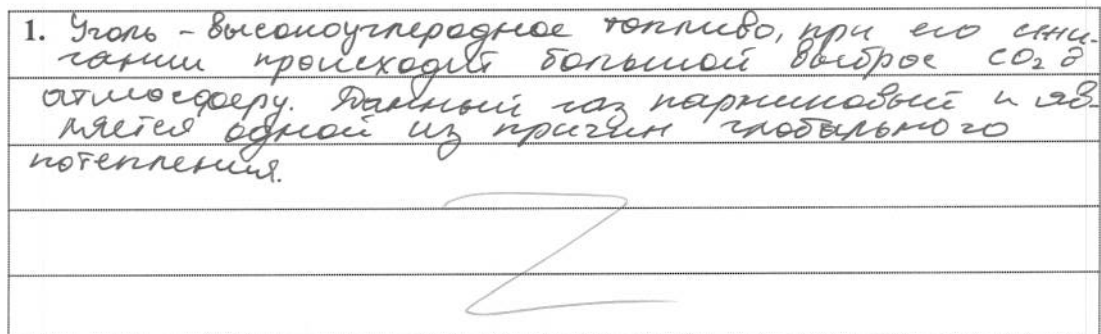 1. Уголь - высокоуглеродное топливо, при его сжи-
гании происходит большой выброс CO₂ в
атмосферу. Данный газ парниковый и яв-
ляется одной из причин глобального
потепления.